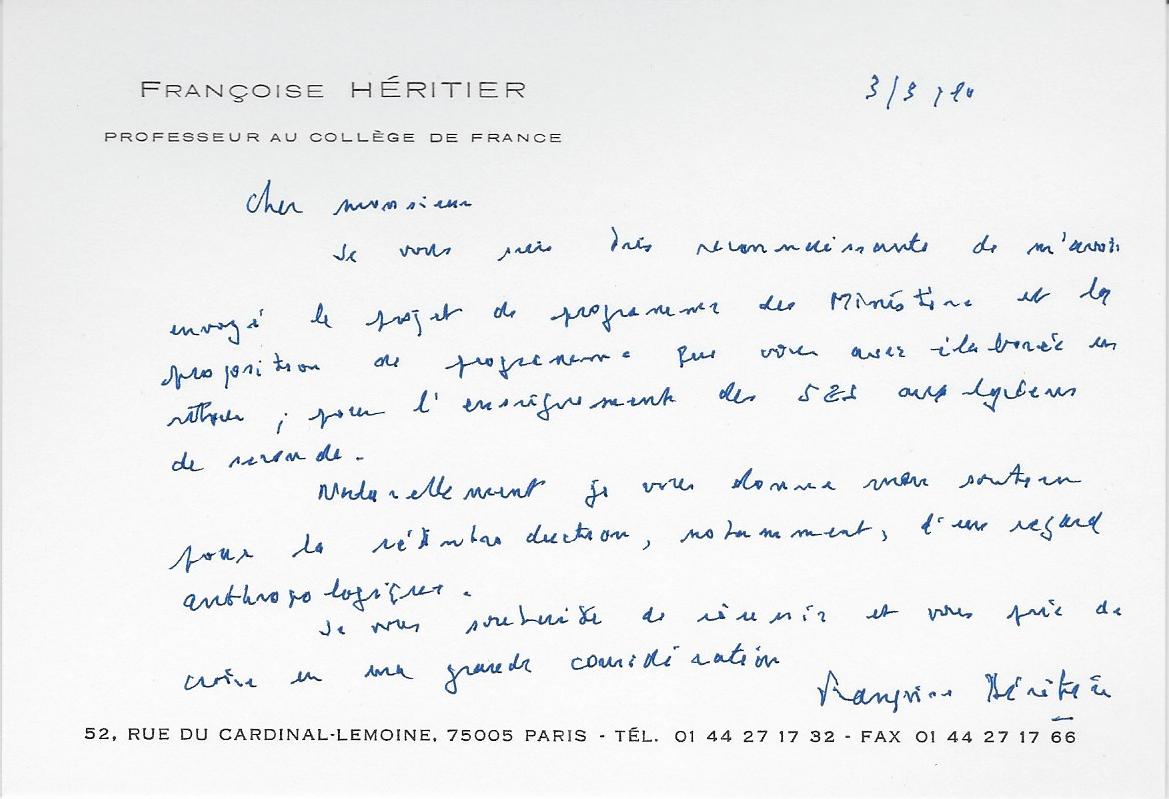 FRANÇOISE HÉRITIER
3/3
PROFESSEUR AU COLLÈGE DE FRANCE
Cher monsieur
Je vous suis très reconnaissante de m'avoir
envoyé le projet de programme du Ministère et la
proposition de programme que vous avez élaborée en
retour, pour l'enseignement des SES aux lycéens
de seconde.
Naturellement je vous donne mon soutien
pour la réintroduction, notamment, d'un regard
anthropologique.
Je vous souhaite de réussir et vous prie de
croire en ma grande considération
Françoise Héritier
52, RUE DU CARDINAL-LEMOINE, 75005 PARIS - TÉL. 01 44 27 17 32 - FAX 01 44 27 17 66